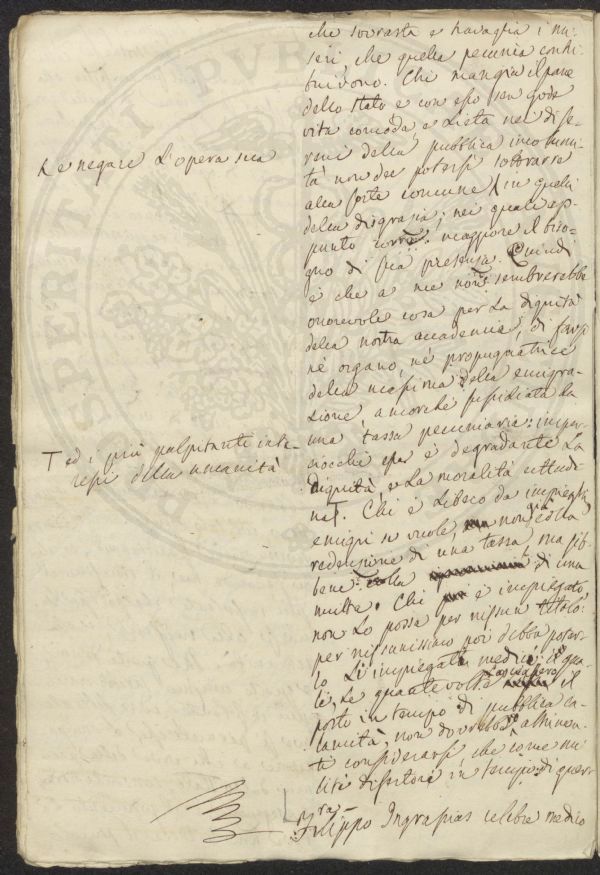 che sovrasta e travaglia i mi-
seri, che quella pecunia contri-
buivono. Chi mangia il pane
dello stato e con esso sen gode
vita comoda, e lieta nei di se-
reni della pubblica incolumi-
tà non dee potersi sottrarre
alla sorte comune in quelli
della disgrazia; nei quali ap-
punto maggiore il biso-
gno di sua presenza. Quindi
è che a me non sembrerebbe
onorevole cosa per la dignità
della nostra accademia, di farsi
nè organo, nè propugnatrice
della massima della emigra-
zione, ancorchè sussidiata da
una tassa pecuniaria: imper-
ciocchè essa è degradante la
dignità, e la moralità cittadi-
na T. Chi è libero da impieghi,
emigri se vuole, non già colla
redenzione di una tassa, ma sib-
bene colla di una
multa. Chi è impiegato,
non lo possa per nissun titolo:
per nissunissimo poi debba poter-
lo l'impiegato medico: il qua-
le, le quante volte lasciassero il
posto in tempo di pubblica ca-
lamità, non dovrebbe altrimen-
ti considerarsi, che come mi-
lite disertore in tempo di guerra
Filippo Ingrassias celebre medico
e negare l'opera sua
T ed i più palpitanti inte-
ressi della umanità
PROSPERITATI PUBLICAE